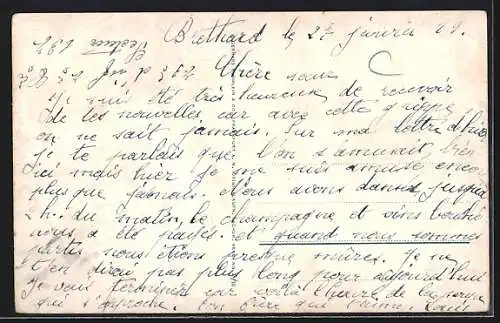 le 27 janvier 19.
Chère sœur
Je suis été très heureuse de recevoir
de tes nouvelles, car avec cette grippe
on ne sait jamais. Sur ma lettre d'hier
je te parlais que l'on s'amusait, très
mais hier je me suis amusé encore
plus que jamais. Nous avons dansé jusqu'à
2 h. du matin, le champagne et vins bouchés
nous a été payés. et quand nous sommes
partis nous étions presque mûres. Je ne
t'en dirai pas plus long pour aujourd'hui
Je vais terminer car voilà l'heure de la soupe
qui s'approche. Ton frère qui t'aime. Louis